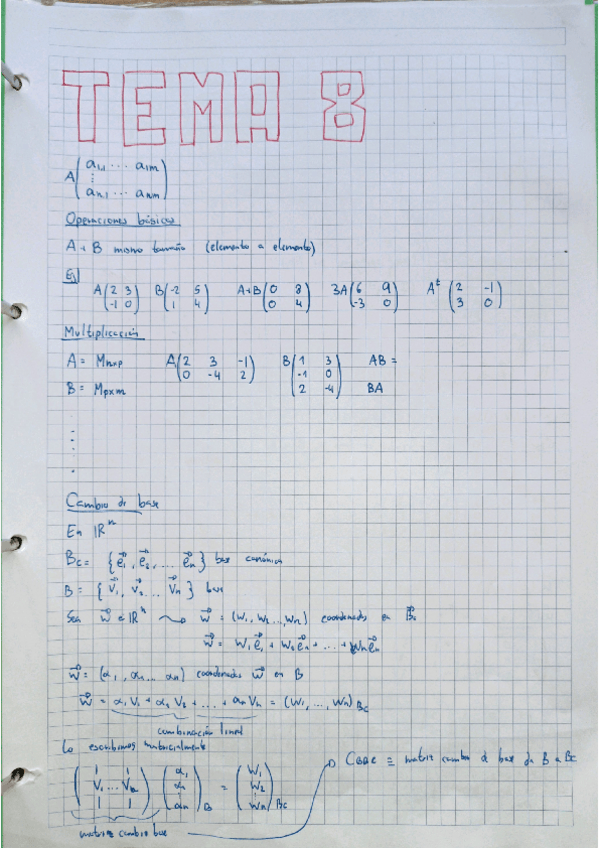 TEMA 8
A ( a₁,₁ ... a₁m
⋮
aₙ,₁ ... aₙm )
Operaciones básicas
A + B mismo tamaño (elemento a elemento)
Ej A ( 2 3 B ( -2 5 A+B ( 0 8 3A ( 6 9 Aᵗ ( 2 -1
-1 0 ) 1 4 ) 0 4 ) -3 0 ) 3 0 )
Multiplicación
A = Mnxp A ( 2 3 -1 B ( 1 3 AB =
0 -4 2 ) -1 0
B = Mpxm 2 -4 ) BA
Cambio de base
En ℝⁿ
Bc = { e⃗₁, e⃗₂, ... e⃗ₙ } base canónica
B = { v⃗₁, v⃗₂ ... v⃗ₙ } base
Sea w⃗ ∈ ℝⁿ ⇝ w⃗ = (w₁, w₂ ..., wₙ) coordenadas en Bc
w⃗ = w₁e⃗₁ + w₂e⃗ₙ + ... + wₙe⃗ₙ
w⃗ = (α₁, αₙ ... αₙ) coordenadas w⃗ en B
w⃗ = α₁ v₁ + α₂ v₂ + ... + αₙ vₙ = (w₁, ..., wₙ)Bc
combinación lineal
Lo escribimos matricialmente
( | | ) ( α₁ ) ( w₁ ) CBBC ≡ matriz cambio de base de B a Bc
( v₁ ... vₙ ) ( αₙ ) = ( w₂ )
( | | ) ( αₙ )B ( wₙ )Bc
matriz cambio base